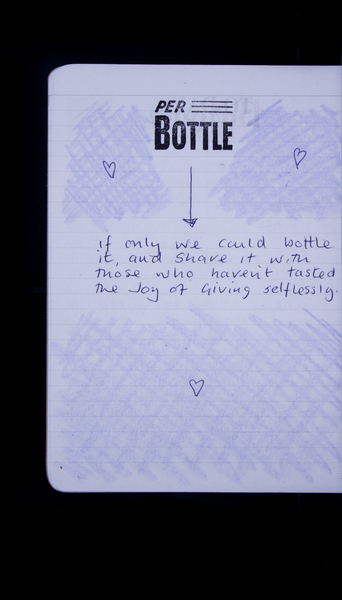 PER
BOTTLE
if only we could bottle
it, and share it with
those who haven't tasted
the Joy of Giving selflessly.